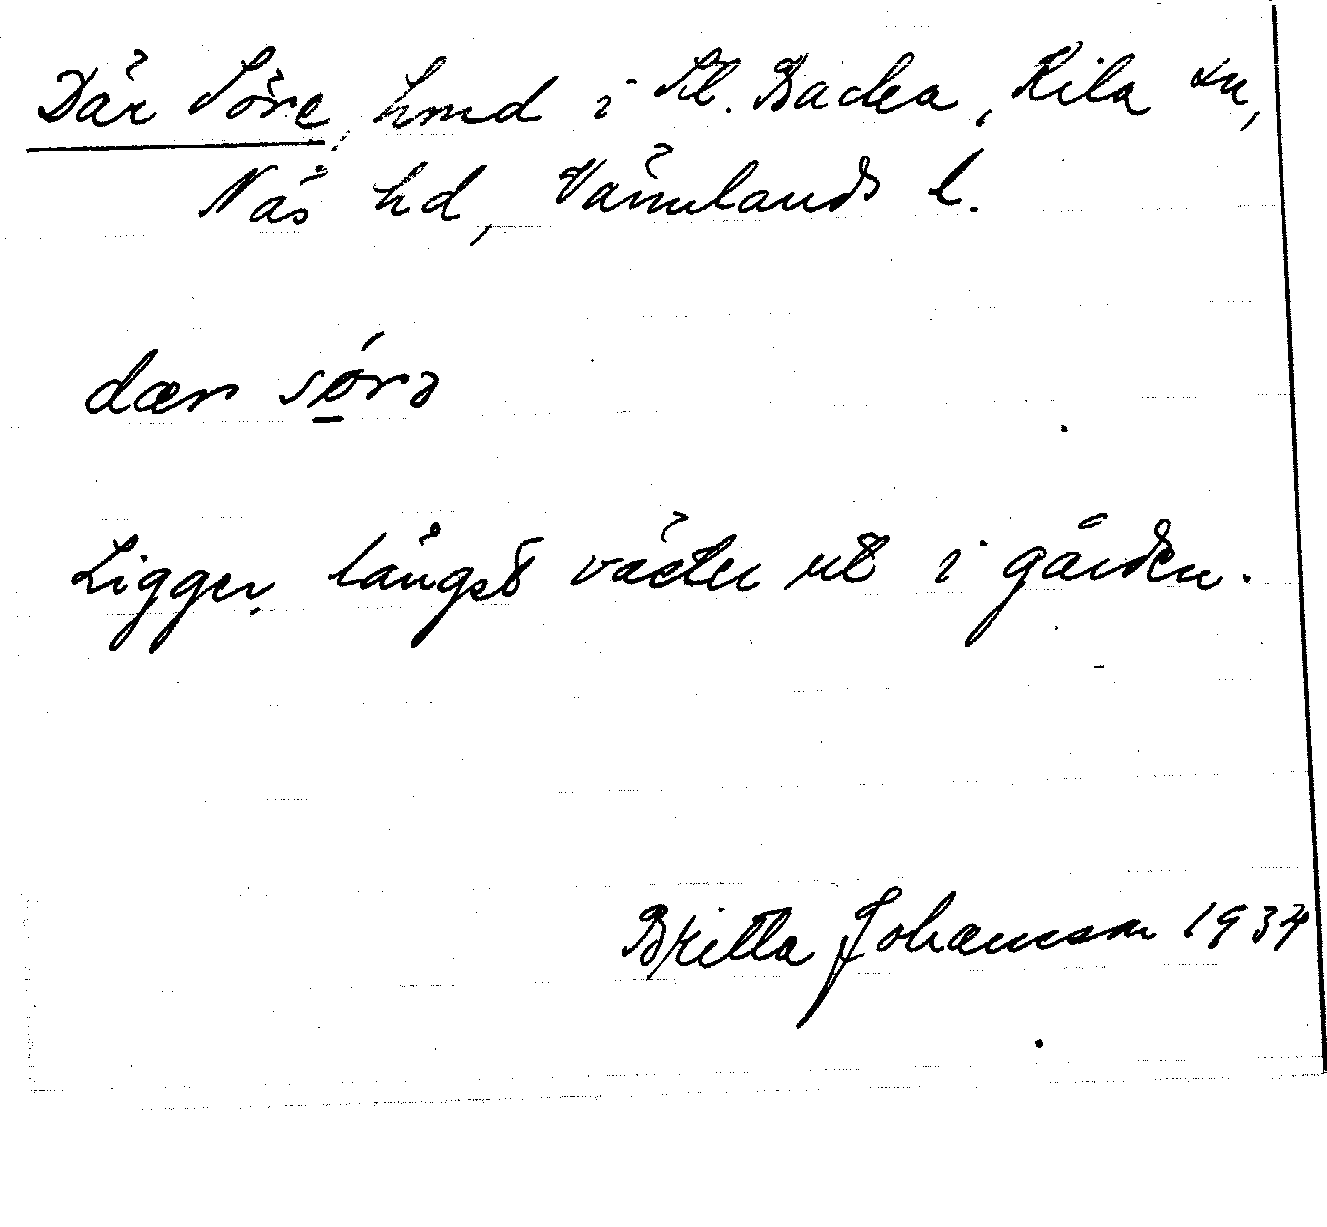 Där Söre, hmd i St. Backa, Kila sn,
Näs hd, Värmlands l.
dær sørə
Ligger längst väster ut i gärden.
Britta Johansson 1934